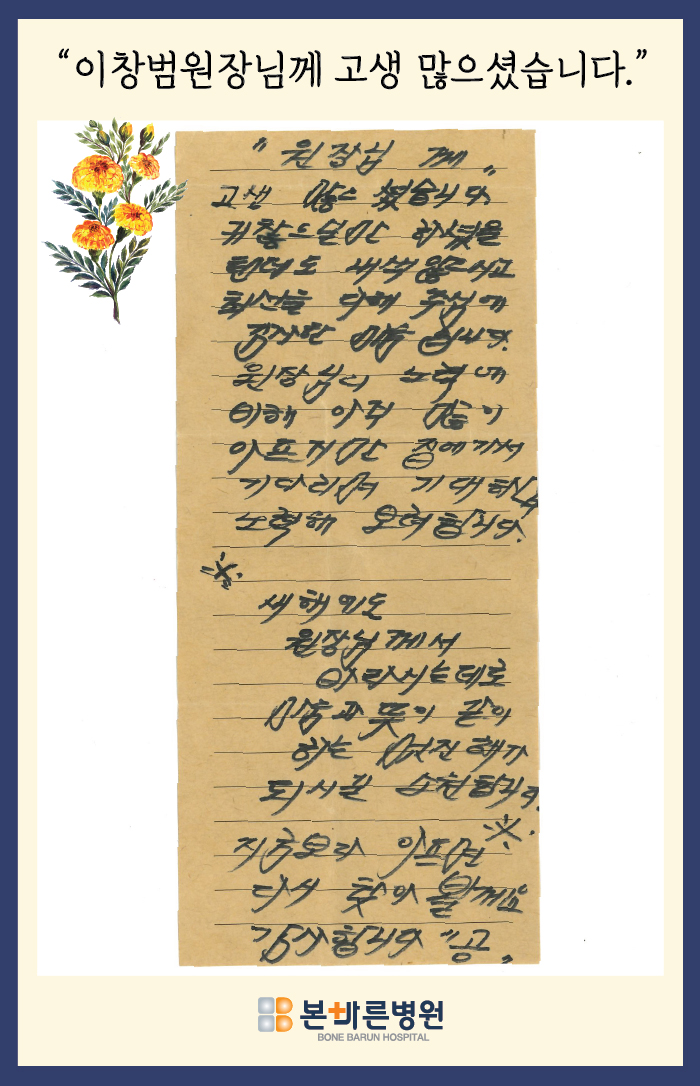 “이창범원장님께 고생 많으셨습니다.”
"원장님 께"
고생 많으셨습니다
귀찮으실만 하셨을
텐데도 내색않으시고
최선을 다해 주심에
감사한 마음 입니다.
원장님의 노력에
비해 아직 많이
아프지만 집에가서
기다리며 기대하
노력해 보려합니다.
※
새해에도
원장님께서
바라시는데로
마음과 뜻이 같이
하는 멋진해가
되시길 소천합니다.
※.
치료보다 아프면
다시 찾아 뵐께요
감사합니다 "공"
본바른병원
BONE BARUN HOSPITAL